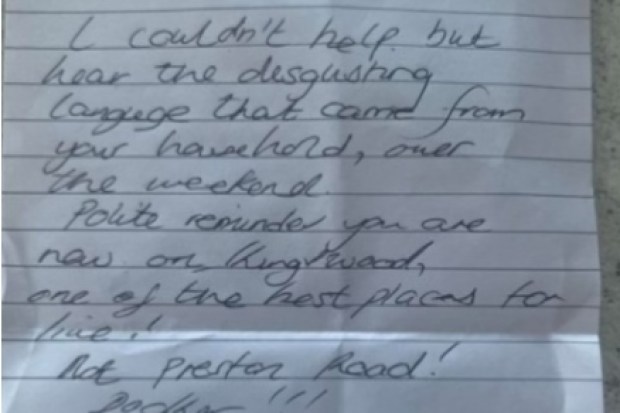 I couldn't help but
hear the disgusting
language that came from
your household, over
the weekend.
Polite reminder you are
now on Kingswood,
one of the best places for
live!
Not Preston Road!
!!!